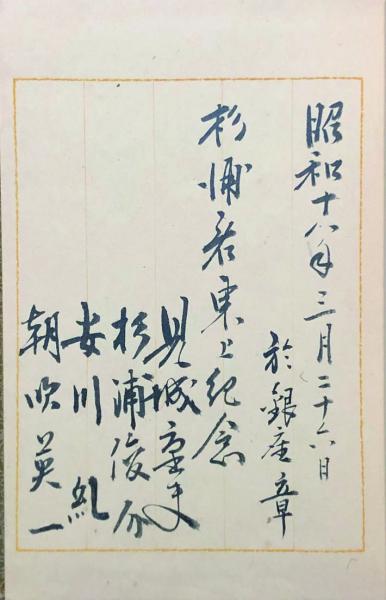 昭和十八年三月二十六日
於銀座章
杉浦君東上紀念
見城重吏
杉浦俊介
安川亂
朝吹英一